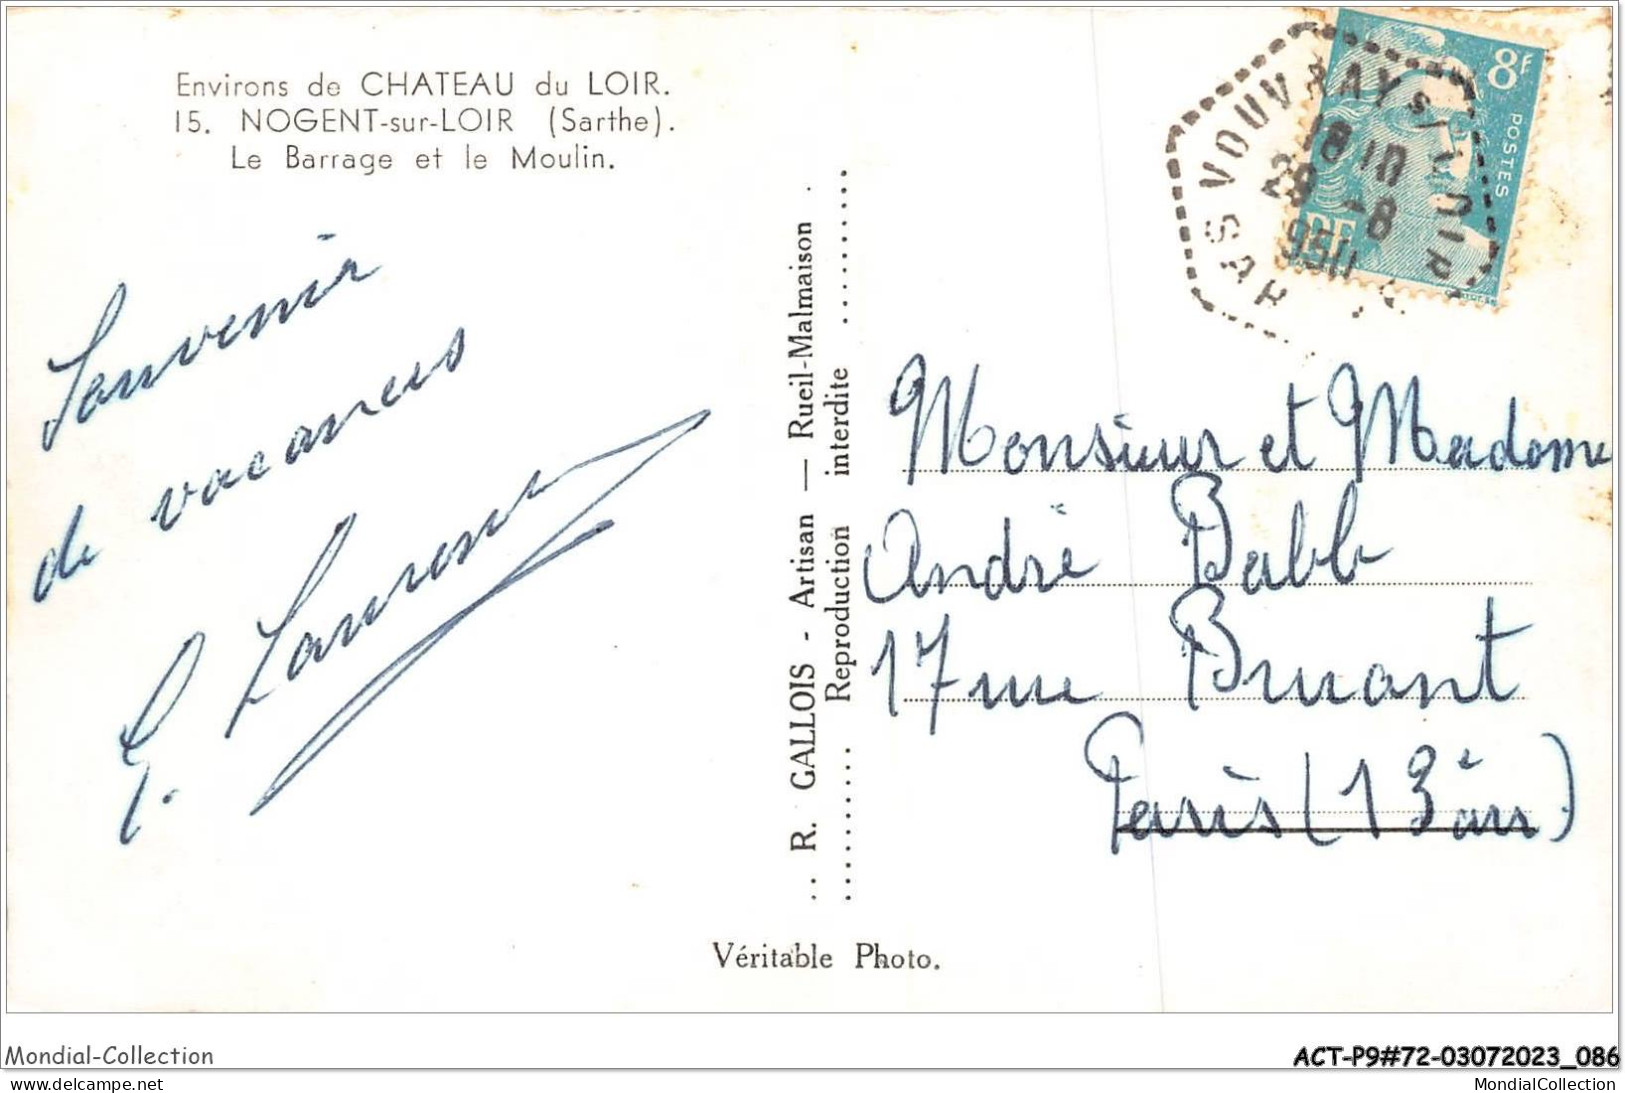 Environs de CHATEAU du LOIR.
15. NOGENT-sur-LOIR (Sarthe).
Le Barrage et le Moulin.
Souvenir
de vacances
G.
R. GALLOIS - Artisan — Rueil-Malmaison
Reproduction interdite
8F
POSTES
RF
VOUVRAY S/ LOIR
18 10
28 -8
Monsieur et Madame
André Babb
17 rue Bruant
Paris (13è arr)
Véritable Photo.
Mondial-Collection
ACT-P9#72-03072023_086
www.delcampe.net
MondialCollection